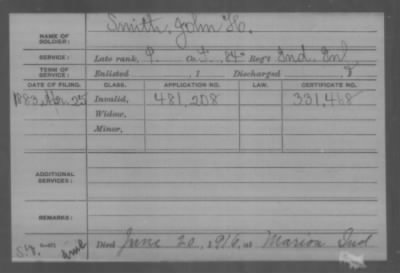 NAME OF SOLDIER: Smith, John H.
SERVICE: Late rank, P. Co. I, 84 Reg't Ind. Inf
TERM OF SERVICE: Enlisted , 1 Discharged , 8
DATE OF FILING. CLASS. APPLICATION NO. LAW. CERTIFICATE NO.
1883, Apr. 25 Invalid, 481,208 331,468
Widow,
Minor,
ADDITIONAL SERVICES:
REMARKS:
Died June 20, 1916, at Marion Ind